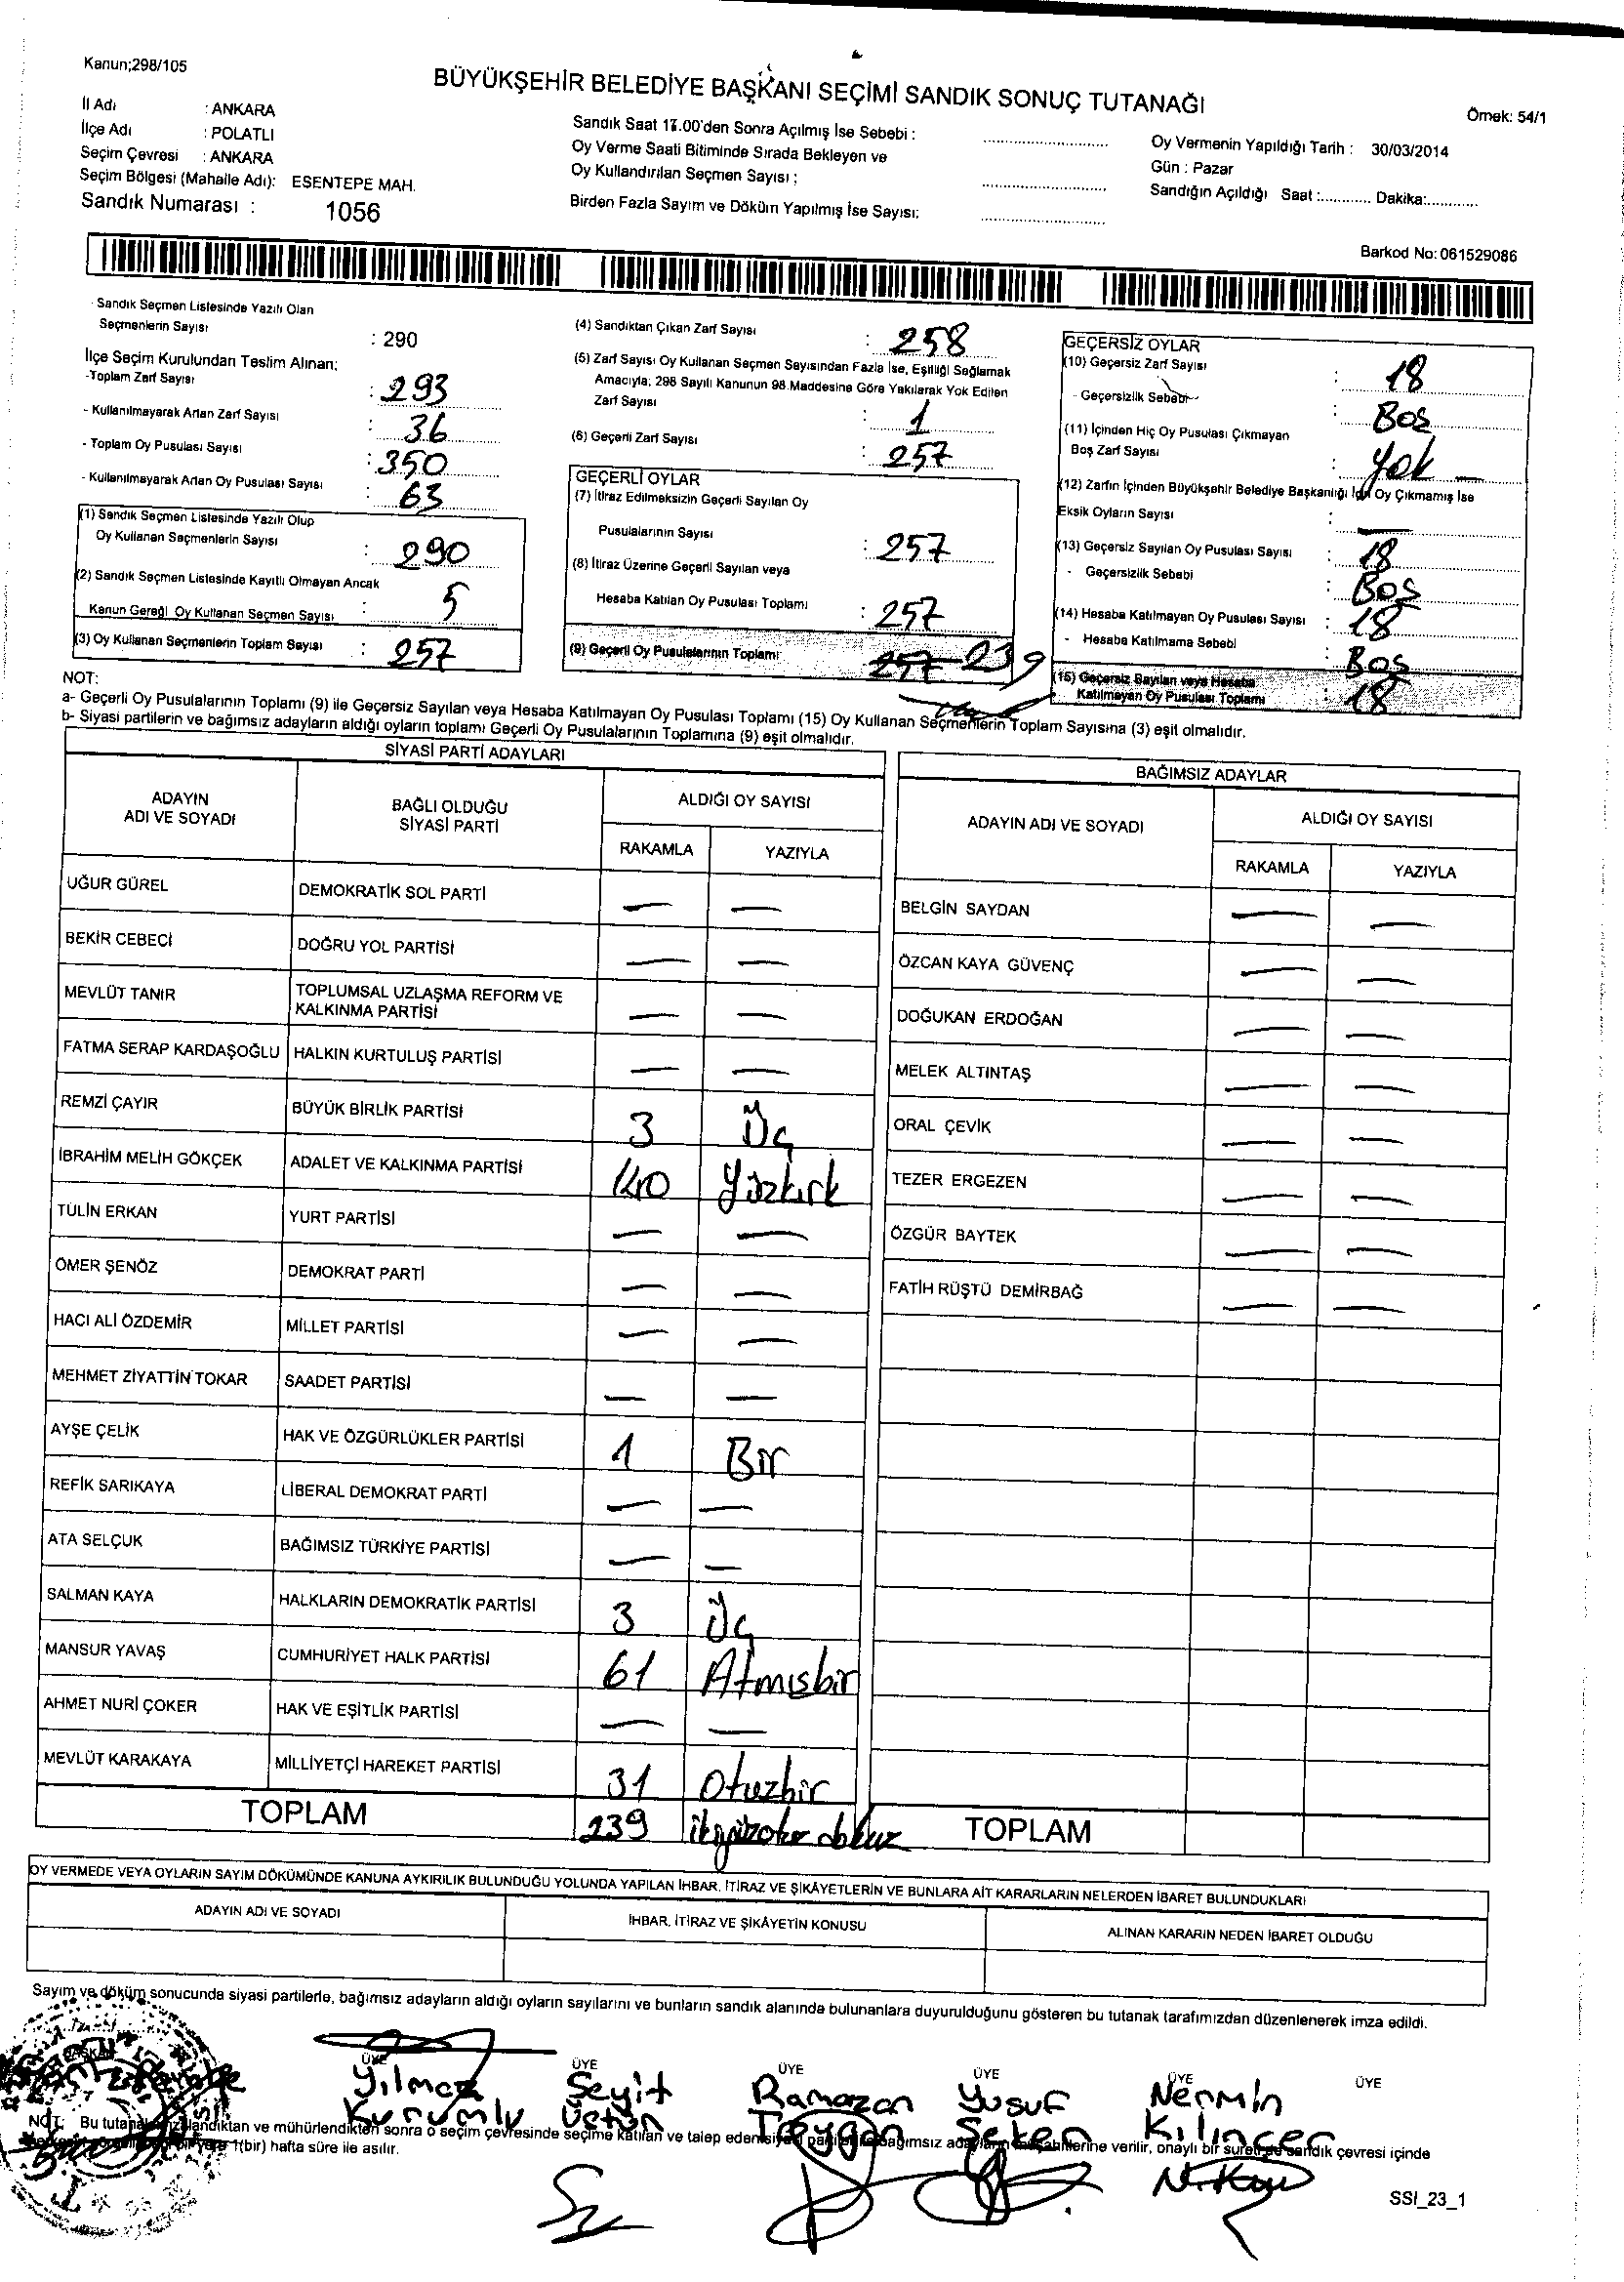 Kanun;298/105
BÜYÜKŞEHİR BELEDİYE BAŞKANI SEÇİMİ SANDIK SONUÇ TUTANAĞI
Örnek: 54/1
İl Adı : ANKARA
İlçe Adı : POLATLI
Seçim Çevresi : ANKARA
Seçim Bölgesi (Mahalle Adı): ESENTEPE MAH.
Sandık Numarası : 1056
Sandık Saat 17.00'den Sonra Açılmış İse Sebebi : ..............................
Oy Verme Saati Bitiminde Sırada Bekleyen ve
Oy Kullandırılan Seçmen Sayısı ; ..............................
Birden Fazla Sayım ve Döküm Yapılmış İse Sayısı: ..............................
Oy Vermenin Yapıldığı Tarih : 30/03/2014
Gün : Pazar
Sandığın Açıldığı Saat :............ Dakika:............
Barkod No: 061529086
Sandık Seçmen Listesinde Yazılı Olan
Seçmenlerin Sayısı : 290
İlçe Seçim Kurulundan Teslim Alınan;
-Toplam Zarf Sayısı : 293
- Kullanılmayarak Artan Zarf Sayısı : 36
- Toplam Oy Pusulası Sayısı : 350
- Kullanılmayarak Artan Oy Pusulası Sayısı : 63
(1) Sandık Seçmen Listesinde Yazılı Olup
Oy Kullanan Seçmenlerin Sayısı : 290
(2) Sandık Seçmen Listesinde Kayıtlı Olmayan Ancak
Kanun Gereği Oy Kullanan Seçmen Sayısı : 5
(3) Oy Kullanan Seçmenlerin Toplam Sayısı : 257
(4) Sandıktan Çıkan Zarf Sayısı : 258
(5) Zarf Sayısı Oy Kullanan Seçmen Sayısından Fazla İse, Eşitliği Sağlamak
Amacıyla; 298 Sayılı Kanunun 98.Maddesine Göre Yakılarak Yok Edilen
Zarf Sayısı : 1
(6) Geçerli Zarf Sayısı : 257
GEÇERLİ OYLAR
(7) İtiraz Edilmeksizin Geçerli Sayılan Oy
Pusulalarının Sayısı : 257
(8) İtiraz Üzerine Geçerli Sayılan veya
Hesaba Katılan Oy Pusulası Toplamı : 257
(9) Geçerli Oy Pusulalarının Toplamı 257 239
GEÇERSİZ OYLAR
(10) Geçersiz Zarf Sayısı : 18
- Geçersizlik Sebebi : Boş
(11) İçinden Hiç Oy Pusulası Çıkmayan
Boş Zarf Sayısı : Yok —
(12) Zarfın İçinden Büyükşehir Belediye Başkanlığı İçin Oy Çıkmamış İse
Eksik Oyların Sayısı : —
(13) Geçersiz Sayılan Oy Pusulası Sayısı : 18
- Geçersizlik Sebebi : Boş
(14) Hesaba Katılmayan Oy Pusulası Sayısı : 18
- Hesaba Katılmama Sebebi : Boş
(15) Geçersiz Sayılan veya Hesaba
Katılmayan Oy Pusulası Toplamı : 18
NOT:
a- Geçerli Oy Pusulalarının Toplamı (9) ile Geçersiz Sayılan veya Hesaba Katılmayan Oy Pusulası Toplamı (15) Oy Kullanan Seçmenlerin Toplam Sayısına (3) eşit olmalıdır.
b- Siyasi partilerin ve bağımsız adayların aldığı oyların toplamı Geçerli Oy Pusulalarının Toplamına (9) eşit olmalıdır.
SİYASİ PARTİ ADAYLARI
ADAYIN ADI VE SOYADI BAĞLI OLDUĞU SİYASİ PARTİ ALDIĞI OY SAYISI
RAKAMLA YAZIYLA
UĞUR GÜREL DEMOKRATİK SOL PARTİ — —
BEKİR CEBECİ DOĞRU YOL PARTİSİ — —
MEVLÜT TANIR TOPLUMSAL UZLAŞMA REFORM VE KALKINMA PARTİSİ — —
FATMA SERAP KARDAŞOĞLU HALKIN KURTULUŞ PARTİSİ — —
REMZİ ÇAYIR BÜYÜK BİRLİK PARTİSİ 3 Üç
İBRAHİM MELİH GÖKÇEK ADALET VE KALKINMA PARTİSİ 140 Yüzkırk
TÜLİN ERKAN YURT PARTİSİ — —
ÖMER ŞENÖZ DEMOKRAT PARTİ — —
HACI ALİ ÖZDEMİR MİLLET PARTİSİ — —
MEHMET ZİYATTİN TOKAR SAADET PARTİSİ — —
AYŞE ÇELİK HAK VE ÖZGÜRLÜKLER PARTİSİ 1 Bir
REFİK SARIKAYA LİBERAL DEMOKRAT PARTİ — —
ATA SELÇUK BAĞIMSIZ TÜRKİYE PARTİSİ — —
SALMAN KAYA HALKLARIN DEMOKRATİK PARTİSİ 3 Üç
MANSUR YAVAŞ CUMHURİYET HALK PARTİSİ 61 Atmışbir
AHMET NURİ ÇOKER HAK VE EŞİTLİK PARTİSİ — —
MEVLÜT KARAKAYA MİLLİYETÇİ HAREKET PARTİSİ 31 Otuzbir
TOPLAM 239
BAĞIMSIZ ADAYLAR
ADAYIN ADI VE SOYADI ALDIĞI OY SAYISI
RAKAMLA YAZIYLA
BELGİN SAYDAN — —
ÖZCAN KAYA GÜVENÇ — —
DOĞUKAN ERDOĞAN — —
MELEK ALTINTAŞ — —
ORAL ÇEVİK — —
TEZER ERGEZEN — —
ÖZGÜR BAYTEK — —
FATİH RÜŞTÜ DEMİRBAĞ — —
TOPLAM
OY VERMEDE VEYA OYLARIN SAYIM DÖKÜMÜNDE KANUNA AYKIRILIK BULUNDUĞU YOLUNDA YAPILAN İHBAR, İTİRAZ VE ŞİKÂYETLERİN VE BUNLARA AİT KARARLARIN NELERDEN İBARET BULUNDUKLARI
ADAYIN ADI VE SOYADI İHBAR, İTİRAZ VE ŞİKÂYETİN KONUSU ALINAN KARARIN NEDEN İBARET OLDUĞU
Sayım ve döküm sonucunda siyasi partilerle, bağımsız adayların aldığı oyların sayılarını ve bunların sandık alanında bulunanlara duyurulduğunu gösteren bu tutanak tarafımızdan düzenlenerek imza edildi.
BAŞKAN ÜYE ÜYE ÜYE ÜYE ÜYE ÜYE
Yılmaz Seyit Ramazan Yusuf Nermin
Kurumlu Üstün Toygan Şeker Kılınçer
NOT: Bu tutanak imzalandıktan ve mühürlendikten sonra o seçim çevresinde seçime katılan ve talep eden siyasi parti ile bağımsız adayların müşahitlerine verilir, onaylı bir sureti de sandık çevresi içinde
1(bir) hafta süre ile asılır.
N.Kay
SSI_23_1